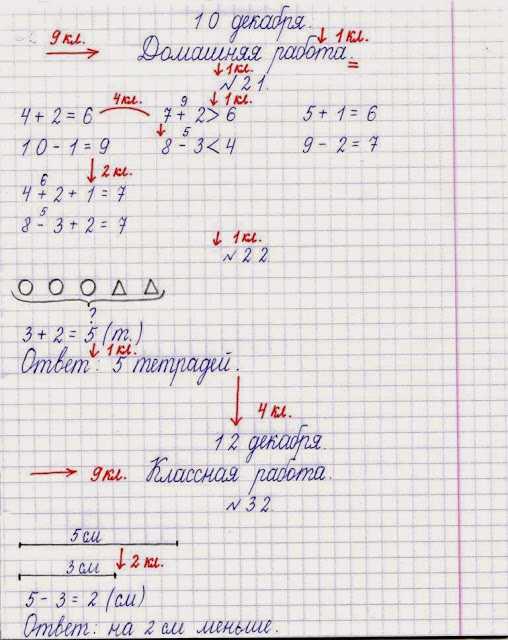 10 декабря.
9 кл. ↓ 1 кл.
Домашняя работа.
↓ 1 кл.
№ 21.
4 кл. ↓ 1 кл.
9
4 + 2 = 6 7 + 2 > 6 5 + 1 = 6
5
10 - 1 = 9 8 - 3 < 4 9 - 2 = 7
↓ 2 кл.
6
4 + 2 + 1 = 7
5
8 - 3 + 2 = 7
↓ 1 кл.
№ 22.
?
3 + 2 = 5 (т.)
↓ 1 кл.
Ответ: 5 тетрадей.
↓ 4 кл.
12 декабря.
→ 9 кл. Классная работа.
№ 32
5 см
3 см ↓ 2 кл.
5 - 3 = 2 (см)
Ответ: на 2 см меньше.